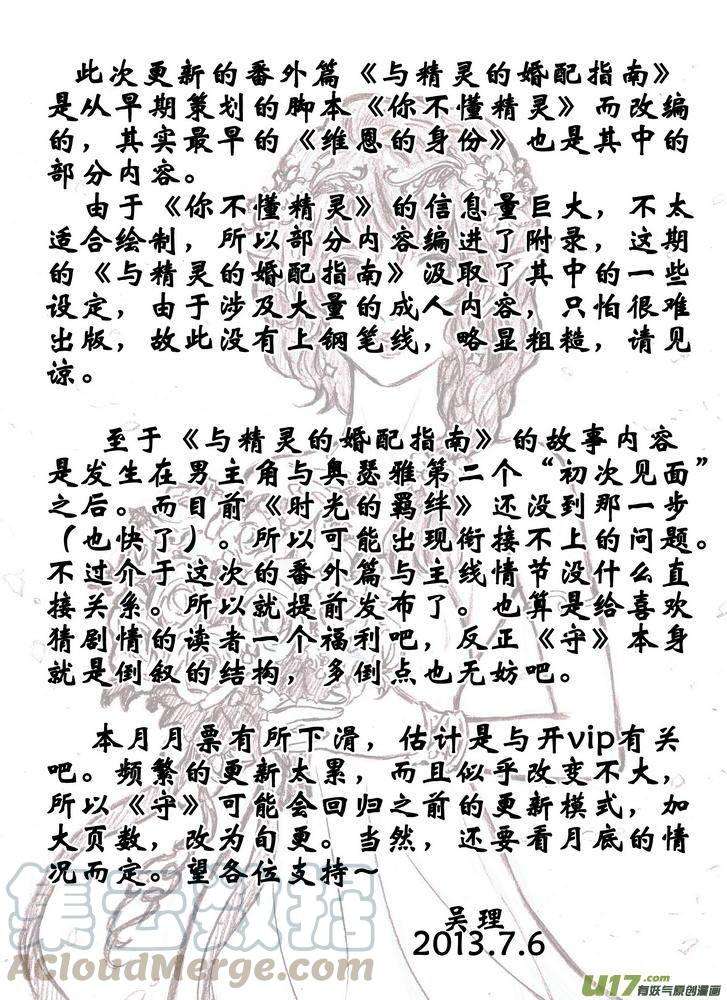 此次更新的番外篇《与精灵的婚配指南》
是从早期策划的脚本《你不懂精灵》而改编
的，其实最早的《维恩的身份》也是其中的
部分内容。
由于《你不懂精灵》的信息量巨大，不太
适合绘制，所以部分内容编进了附录，这期
的《与精灵的婚配指南》汲取了其中的一些
设定，由于涉及大量的成人内容，只怕很难
出版，故此没有上钢笔线，略显粗糙，请见
谅。
至于《与精灵的婚配指南》的故事内容
是发生在男主角与奥瑟雅第二个“初次见面”
之后。而目前《时光的羁绊》还没到那一步
（也快了）。所以可能出现衔接不上的问题。
不过介于这次的番外篇与主线情节没什么直
接关系。所以就提前发布了。也算是给喜欢
猜剧情的读者一个福利吧，反正《守》本身
就是倒叙的结构，多倒点也无妨吧。
本月月票有所下滑，估计是与开vip有关
吧。频繁的更新太累，而且似乎改变不大，
所以《守》可能会回归之前的更新模式，加
大页数，改为旬更。当然，还要看月底的情
况而定。望各位支持～
吴理
2013.7.6
集云数据
ACloudMerge.com
U17.com
有妖气原创漫画